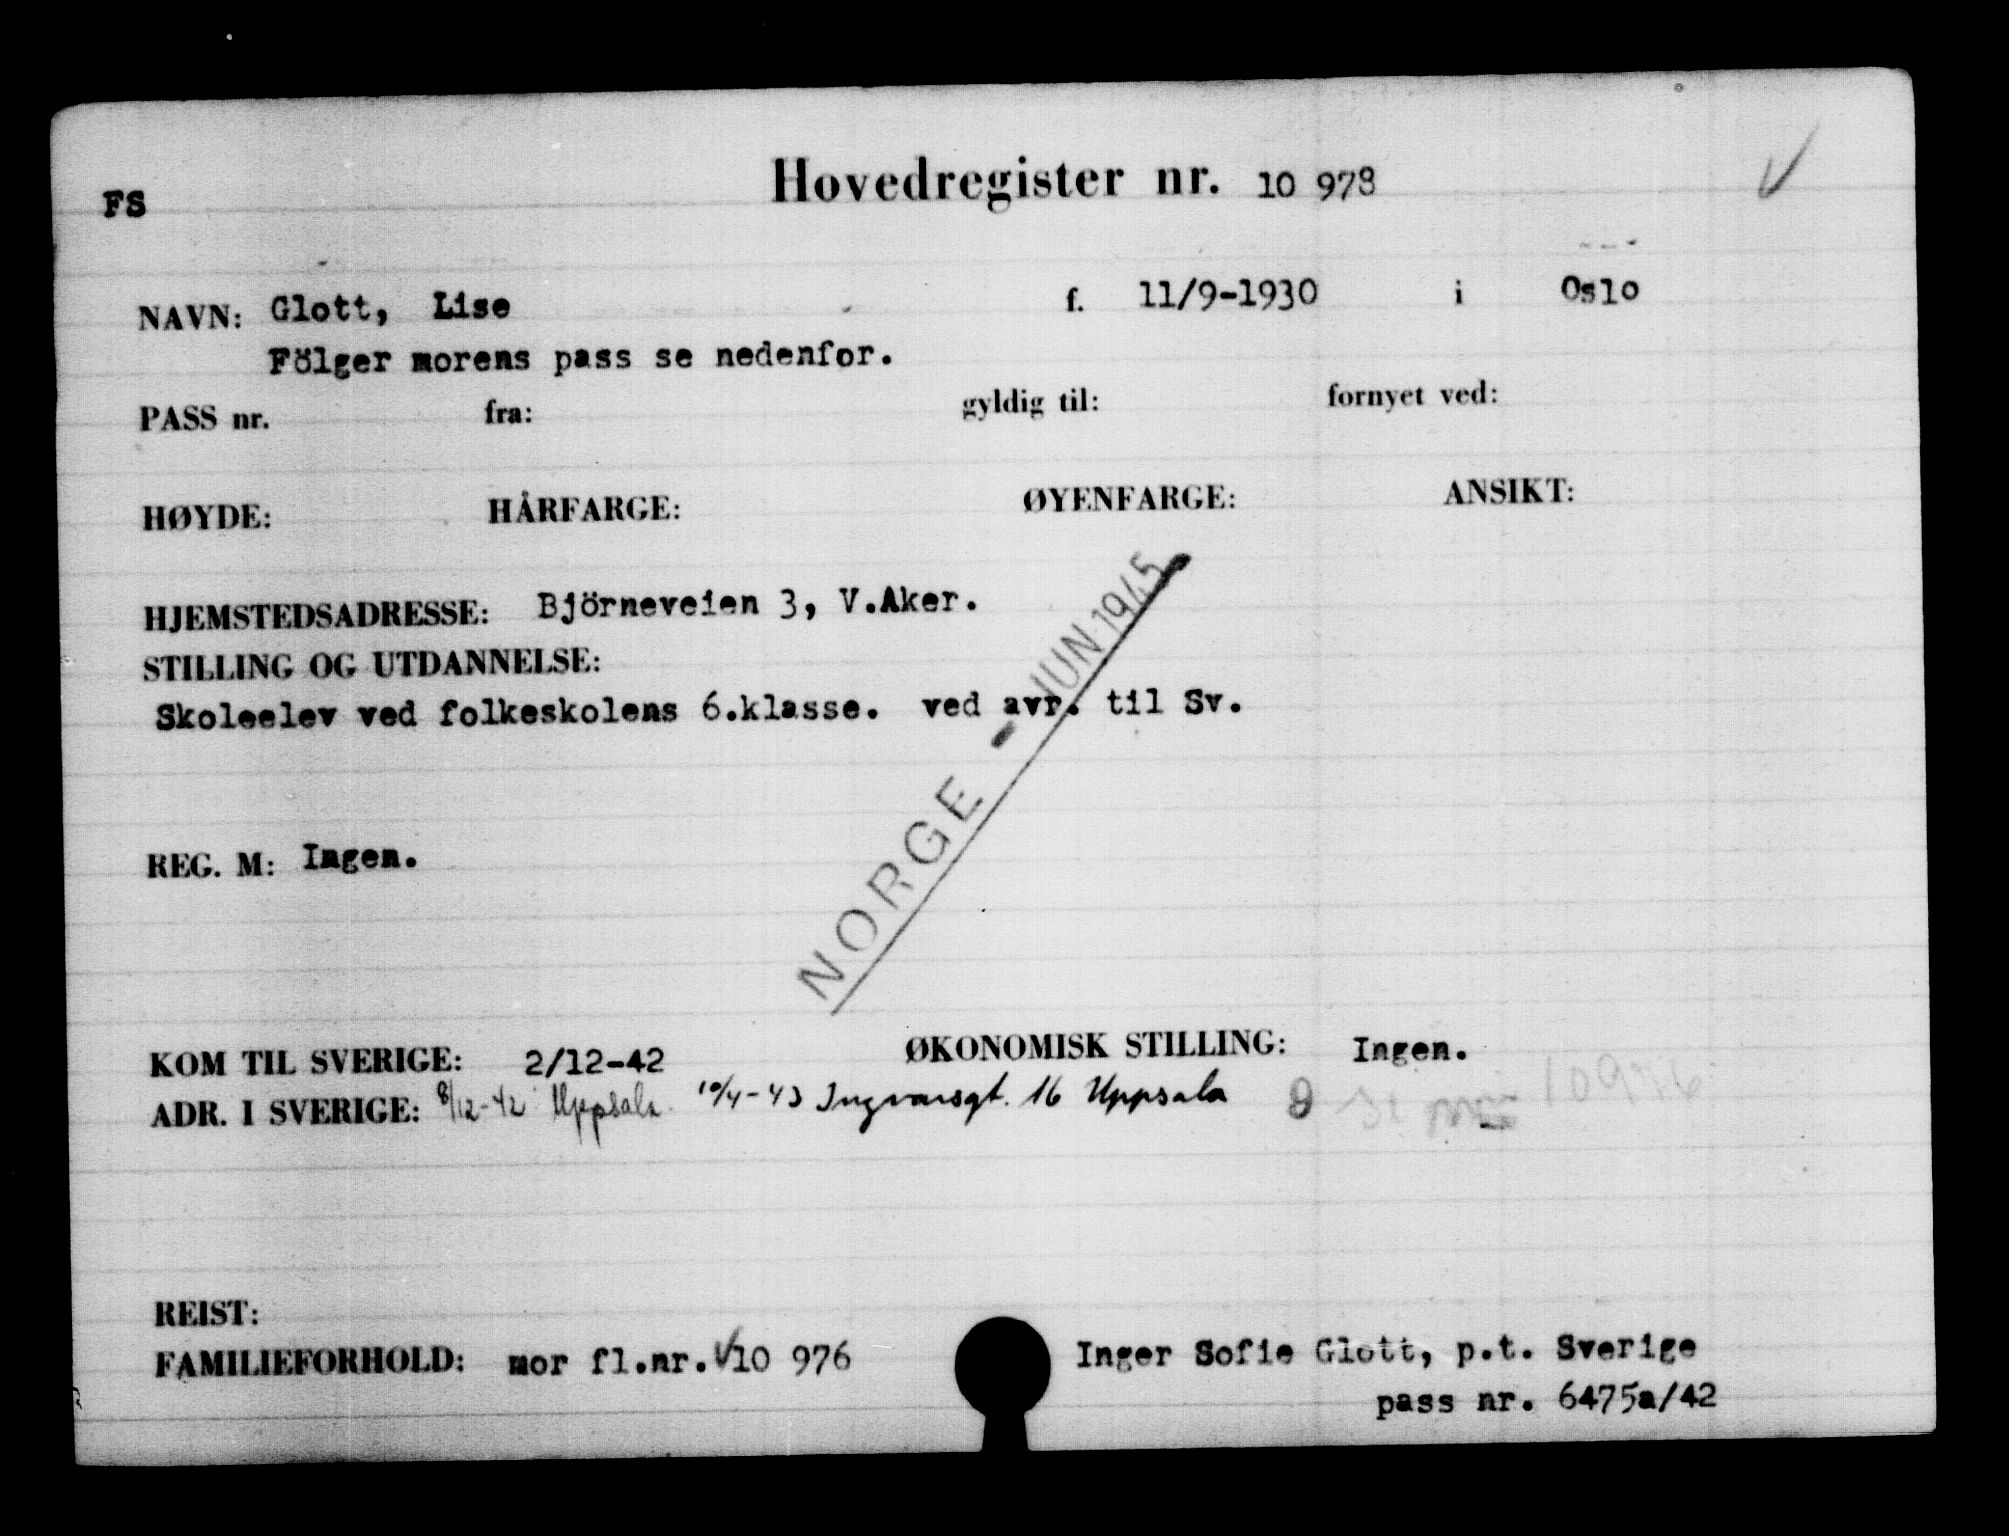 FS
Hovedregister nr. 10 978
NAVN: Glott, Lise f. 11/9-1930 i Oslo
Fölger morens pass se nedenfor.
PASS nr. fra: gyldig til: fornyet ved:
HØYDE: HÅRFARGE: ØYENFARGE: ANSIKT:
HJEMSTEDSADRESSE: Björneveien 3, V.Aker.
STILLING OG UTDANNELSE:
Skoleelev ved folkeskolens 6.klasse. ved avr. til Sv.
NORGE - JUN 1945
REG. M: Ingen.
KOM TIL SVERIGE: 2/12-42 ØKONOMISK STILLING: Ingen.
ADR. I SVERIGE: 8/12-42 Uppsala. 10/4-43 Ingvarsgt. 16 Uppsala se 10976
REIST:
FAMILIEFORHOLD: mor fl.nr. 10 976 Inger Sofie Glott, p.t. Sverige
pass nr. 6475a/42